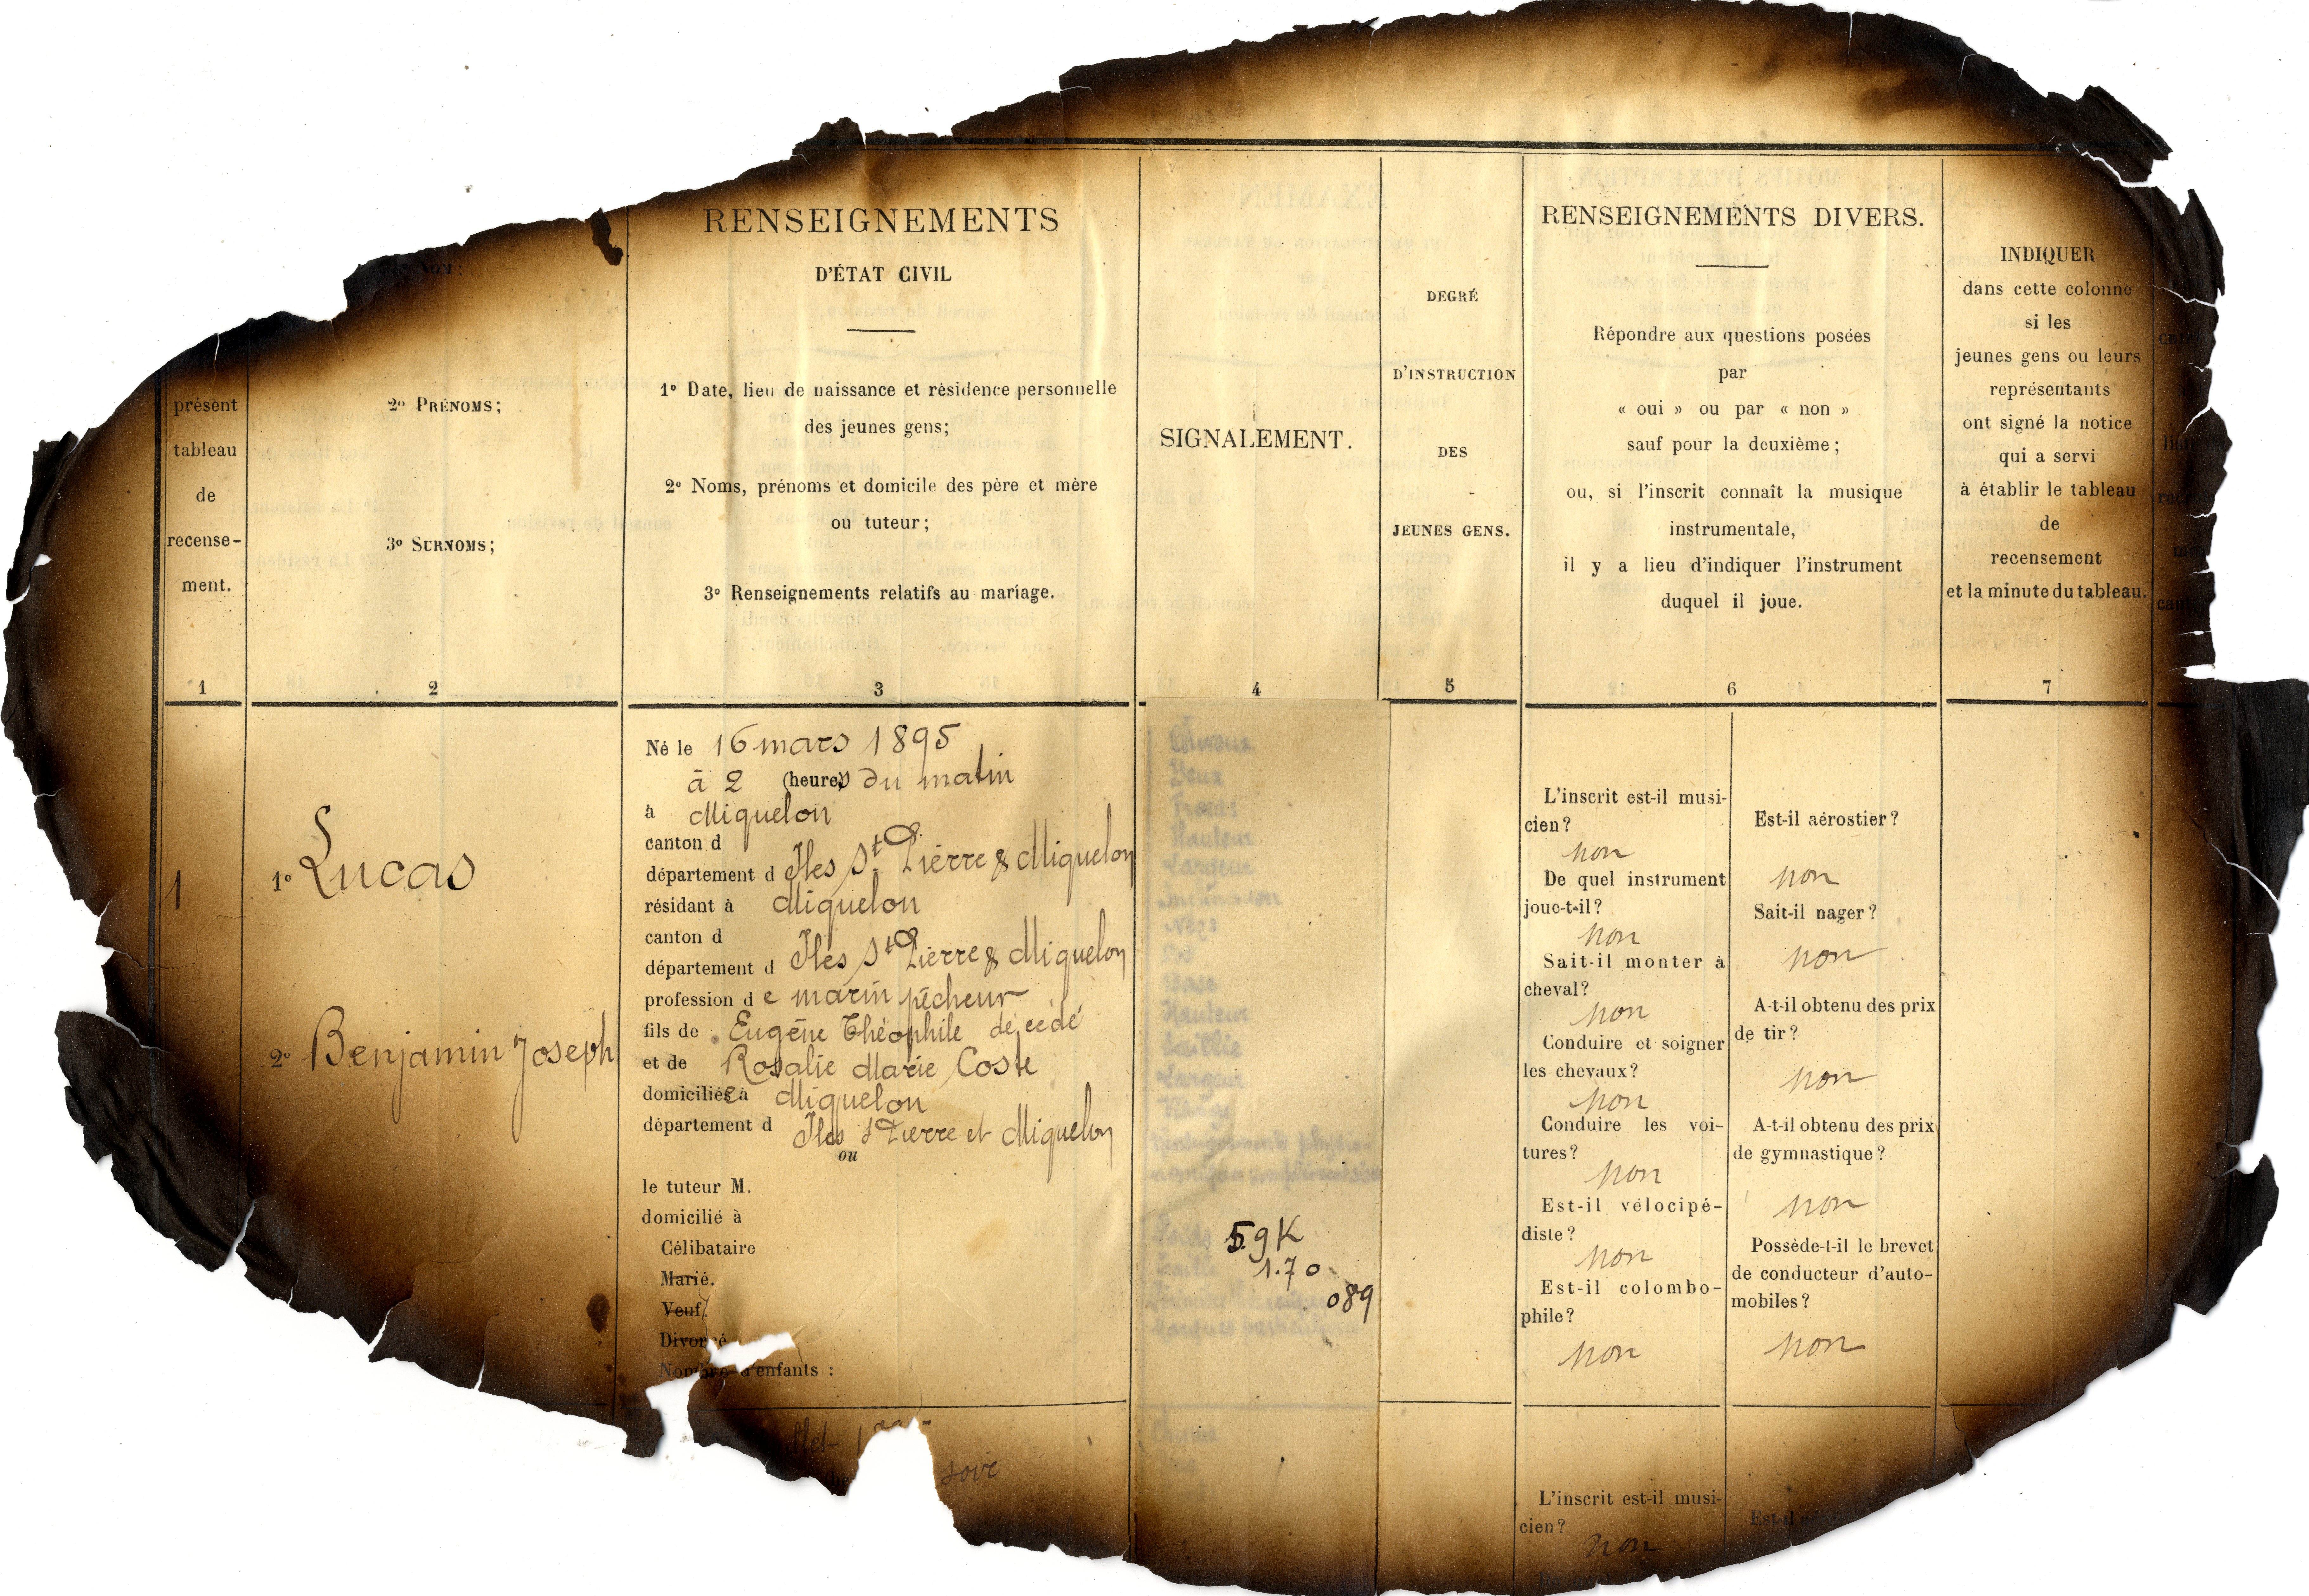 NOM :
présent
tableau
de
recense-
ment.
1
2º PRÉNOMS;
3º SURNOMS;
2
RENSEIGNEMENTS
D'ÉTAT CIVIL
1º Date, lieu de naissance et résidence personnelle
des jeunes gens;
2º Noms, prénoms et domicile des père et mère
ou tuteur;
3º Renseignements relatifs au mariage.
3
SIGNALEMENT.
4
DEGRÉ
D'INSTRUCTION
DES
JEUNES GENS.
5
RENSEIGNEMENTS DIVERS.
Répondre aux questions posées
par
« oui » ou par « non »
sauf pour la deuxième;
ou, si l'inscrit connaît la musique
instrumentale,
il y a lieu d'indiquer l'instrument
duquel il joue.
6
INDIQUER
dans cette colonne
si les
jeunes gens ou leurs
représentants
ont signé la notice
qui a servi
à établir le tableau
de
recensement
et la minute du tableau.
7
1
1º Lucas
2º Benjamin Joseph
Né le 16 mars 1895
à 2 (heures) du matin
à Miquelon
canton d
département d Iles St Pierre & Miquelon
résidant à Miquelon
canton d
département d Iles St Pierre & Miquelon
profession de marin pêcheur
fils de Eugène Théophile décédé
et de Rosalie Marie Coste
domiciliée à Miquelon
département d Iles St Pierre et Miquelon
ou
le tuteur M.
domicilié à
Célibataire
Marié.
Veuf.
Divorcé
Nombre d'enfants :
Cheveux
Yeux
Front
Hauteur
Largeur
Inclinaison
Nez
Dos
Base
Hauteur
Saillie
Largeur
Visage
Renseignements physio-
nomiques complémentaires
Poids 59K
Taille 1.70
089
Marques particulières
L'inscrit est-il musi-
cien?
non
De quel instrument
joue-t-il?
non
Sait-il monter à
cheval?
non
Conduire et soigner
les chevaux?
non
Conduire les voi-
tures?
non
Est-il vélocipé-
diste?
non
Est-il colombo-
phile?
non
Est-il aérostier?
non
Sait-il nager?
non
A-t-il obtenu des prix
de tir?
non
A-t-il obtenu des prix
de gymnastique?
non
Possède-t-il le brevet
de conducteur d'auto-
mobiles?
non
soir
L'inscrit est-il musi-
cien?
non
Est-il